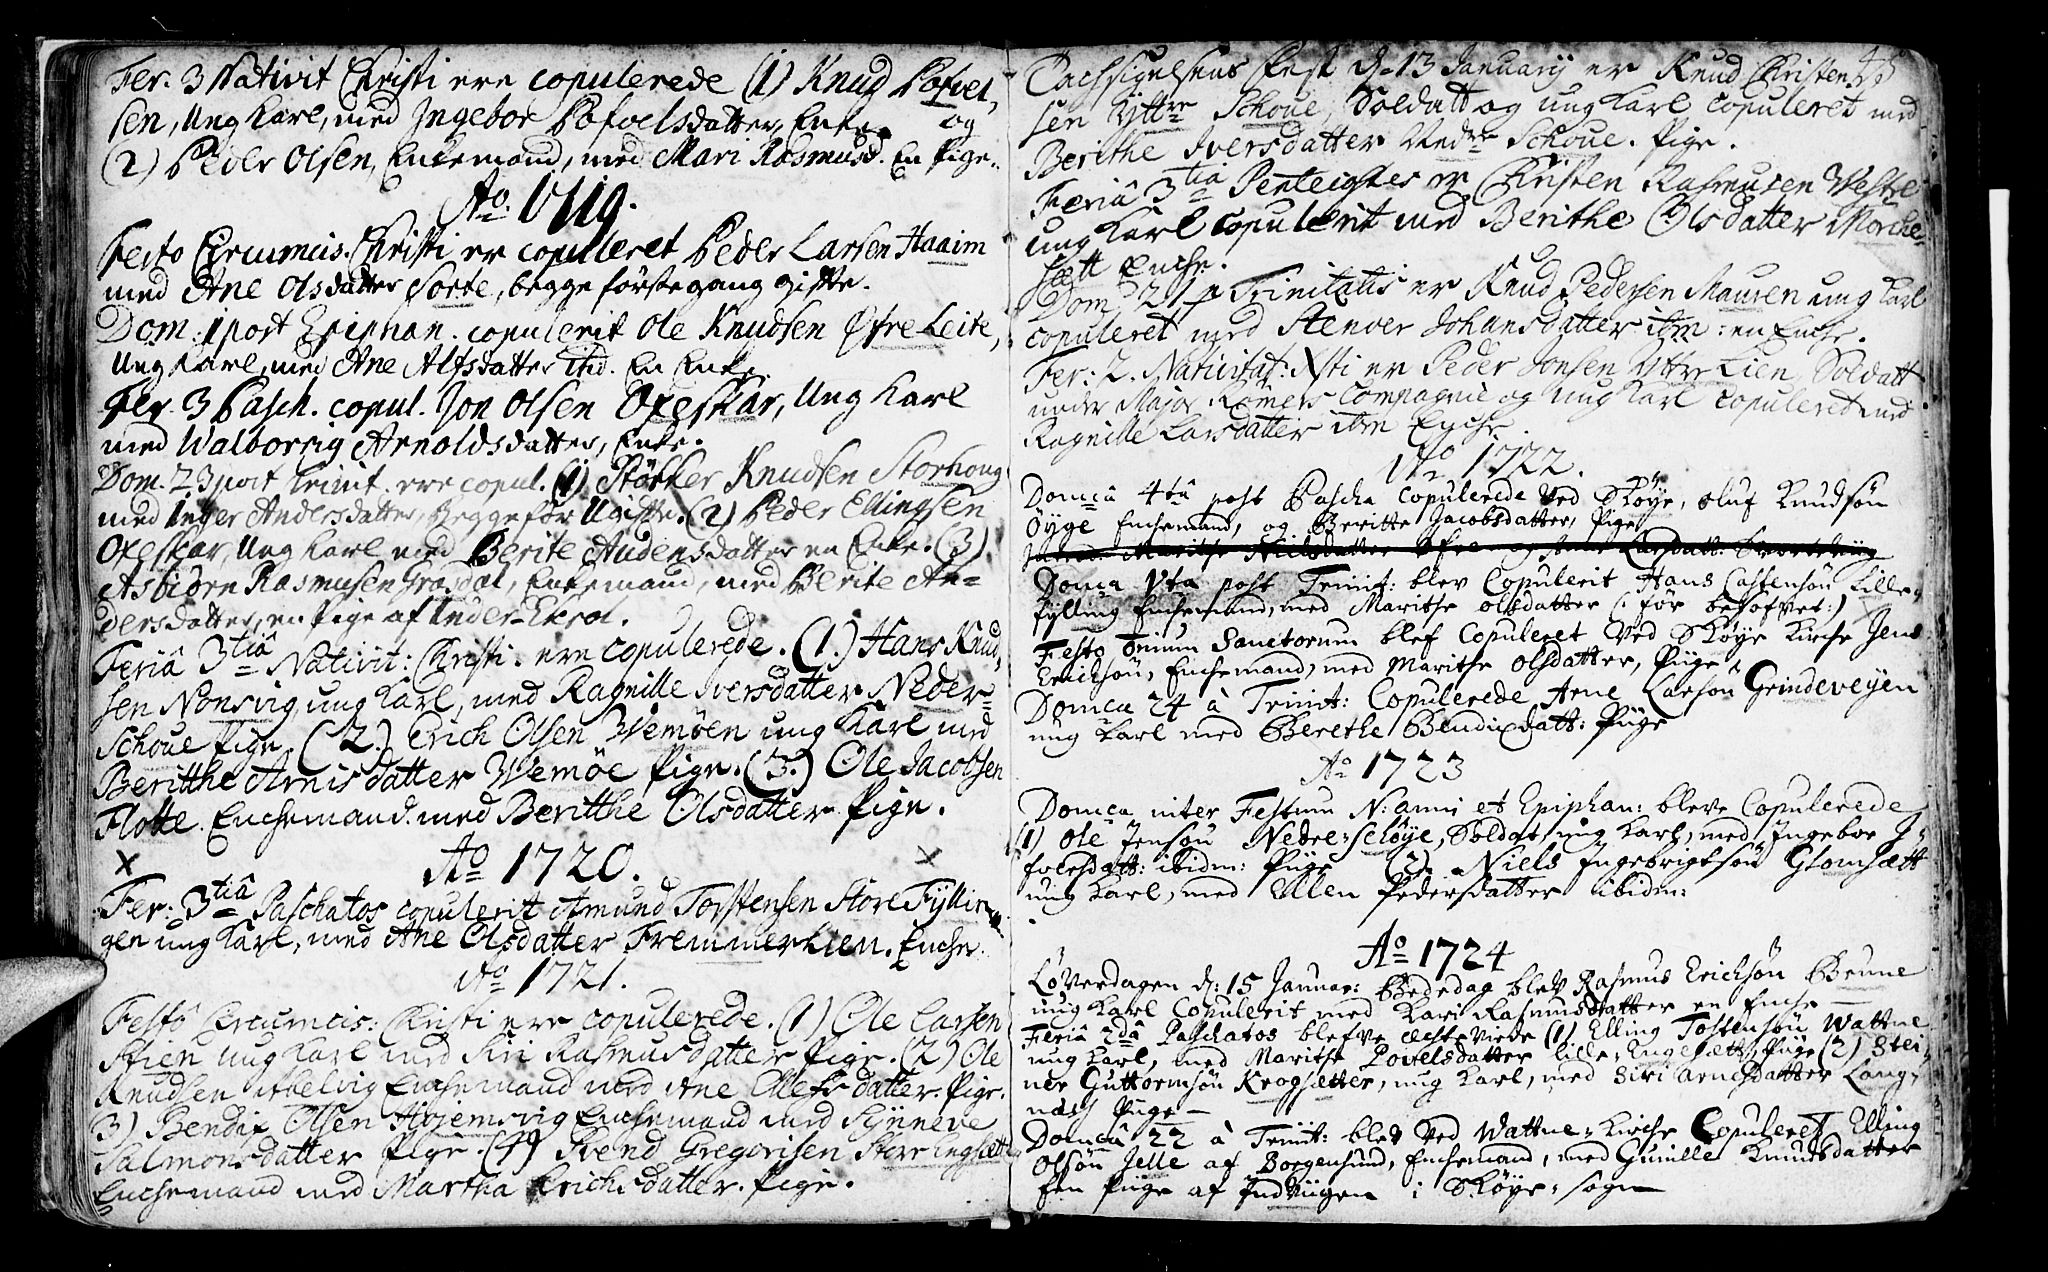 Fer. 3 Nativit Christi ere copulerede (1) Knud Pofvel-
sen, Ung Karl, med Ingebor Pofvelsdatter, Enke. og
(2) Peder Olsen, Enkemand, med Mari Rasmusd. En Pige.
Ao. 1719.
Festo Circumcis. Christi er copuleret Peder Larsen Haaim
med Ane Olsdatter Sorte, begge förstegang gifte.
Dom. 1 post Epiphan. copulerit Ole Knudsen Øfre Leite,
Ung Karl, med Ane Alfsdatter ibid. En Enke.
Fer. 3 Pasch. copul. Jon Olsen Oxeskar, Ung Karl
med Walborrig Arnoldsdatter, Enke.
Dom. 23 post trinit. ere copul. (1) Störker Knudsen Storhoug
med Inger Andersdatter, Begge för Ugifte. (2) Peder Ellingsen
Oxeskar, Ung Karl med Berite Audensdatter en Enke. (3)
Asbiörn Rasmusen Grasdal, Enkemand, med Berite An-
dersdatter, en Pige af Inder-Ekrol.
Feriâ 3tiâ Nativit: Christi. ere copulerede. (1.) Hans Knud-
sen Nonsvig, ung Karl, med Ragnille Iversdatter Neder-
Schoue Pige. (2.) Erich Olsen Wemöen ung Karl med
Beritthe Arnisdatter Wemöe Pige. (3.) Ole Jacobsen
Flotte. Enchemand. med Beritthe Olsdatter. Pige.
x Ao 1720. x
Fer: 3tiâ Paschatos copulerit Amund Torstensen Store Fyllin-
gen ung Karl, med Ane Olsdatter Fremmerlien. Enche.
Ao 1721.
Festô Circumcis: Christi ere copulerede. (1) Ole Larsen
Stien ung Karl med Siri Rasmusdatter Pige. (2) Ole
Knudsen Enchemand med Ane datter. Pige.
3) Bendix Olsen Hojemsvig Enchemand med Synneve
Salmonsdatter Pige. (4) Svend Gregorisen Store Engesett
Enchemand med Martha Erichsdatter. Pige.
Tachsigelsens Fest d. 13 January er Knud Christen-
sen Yttre Schoue, Soldatt og ung Karl copuleret med
Berithe Iversdatter Nedre Schoue. Pige.
Feriâ 3tiâ er Christen Rasmusen Westre
ung Karl copulerit med Berithe Olsdatter Morche-
sætt Enche.
Dom 21 p Trinitatis er Knud Pedersen Mauren ung Karl
copuleret med Stenver Johansdatter ibm: en Enche.
Fer: 2. Nativitat: Xsti er Peder Jonsen Yttre Lien, Soldatt
under Major Römers Compagnie og ung Karl copuleret med
Ragnille Larsdatter ibm Enche
Ao 1722.
Domcâ 4tâ post Pascha Copulerede Ved Sköye, Oluf Knudsön
Öyge Enchemand, og Beritte Jacobsdatter, Pige
Domca Vta post Trinit: blev Copulerit Hans Castensön Lille-
fylling Enchemand, med Marithe Olsdatter (: för besofvet:)
Festo Omium Sanctorum blef Copuleret Ved Sköye Kirche Jens
Ericksön, Enchemand, med Marithe Olsdatter, Piige
Domca 24 à Trinit: Copulerede Arne Larsön Grindeveyen
ung Karl med Berethe Bendixdatt: Piige
Ao 1723
Domca inter Festum N: anni et Epiphan: bleve Copulerede
(1) Ole Jensön Nedre-Schöye, Soldat ung Karl, med Ingebor I-
fversdatt: ibidm: Piige (2) Niels Ingebrigtsön Glomsætt
ung Karl, med Ellen Pedersdatter ibidm:
Ao 1724
Löverdagen d: 15 Januar: Bededag blev Rasmus Ericksön Brune
ung Karl Copulerit med Kari Rasmusdatter en Enche
Feriâ 2dâ Paschatos blefve ægteviede (1) Elling Tostensön Wattne
ung Karl, med Marithe Povelsdatter Lille-Engesætt, Piige (2) Stei-
ner Guttormsön Krogsætter, ung Karl, med Siri Arnesdatter Lang-
næss Piige
Domcâ 22 à Trinit: blev Ved Wattne-Kirche Copuleret Elling
Olsön Jelle af Borgensund, Enchemand, med Gunille Knudsdatter
Een Piige af Indviigen i Sköye-sogn